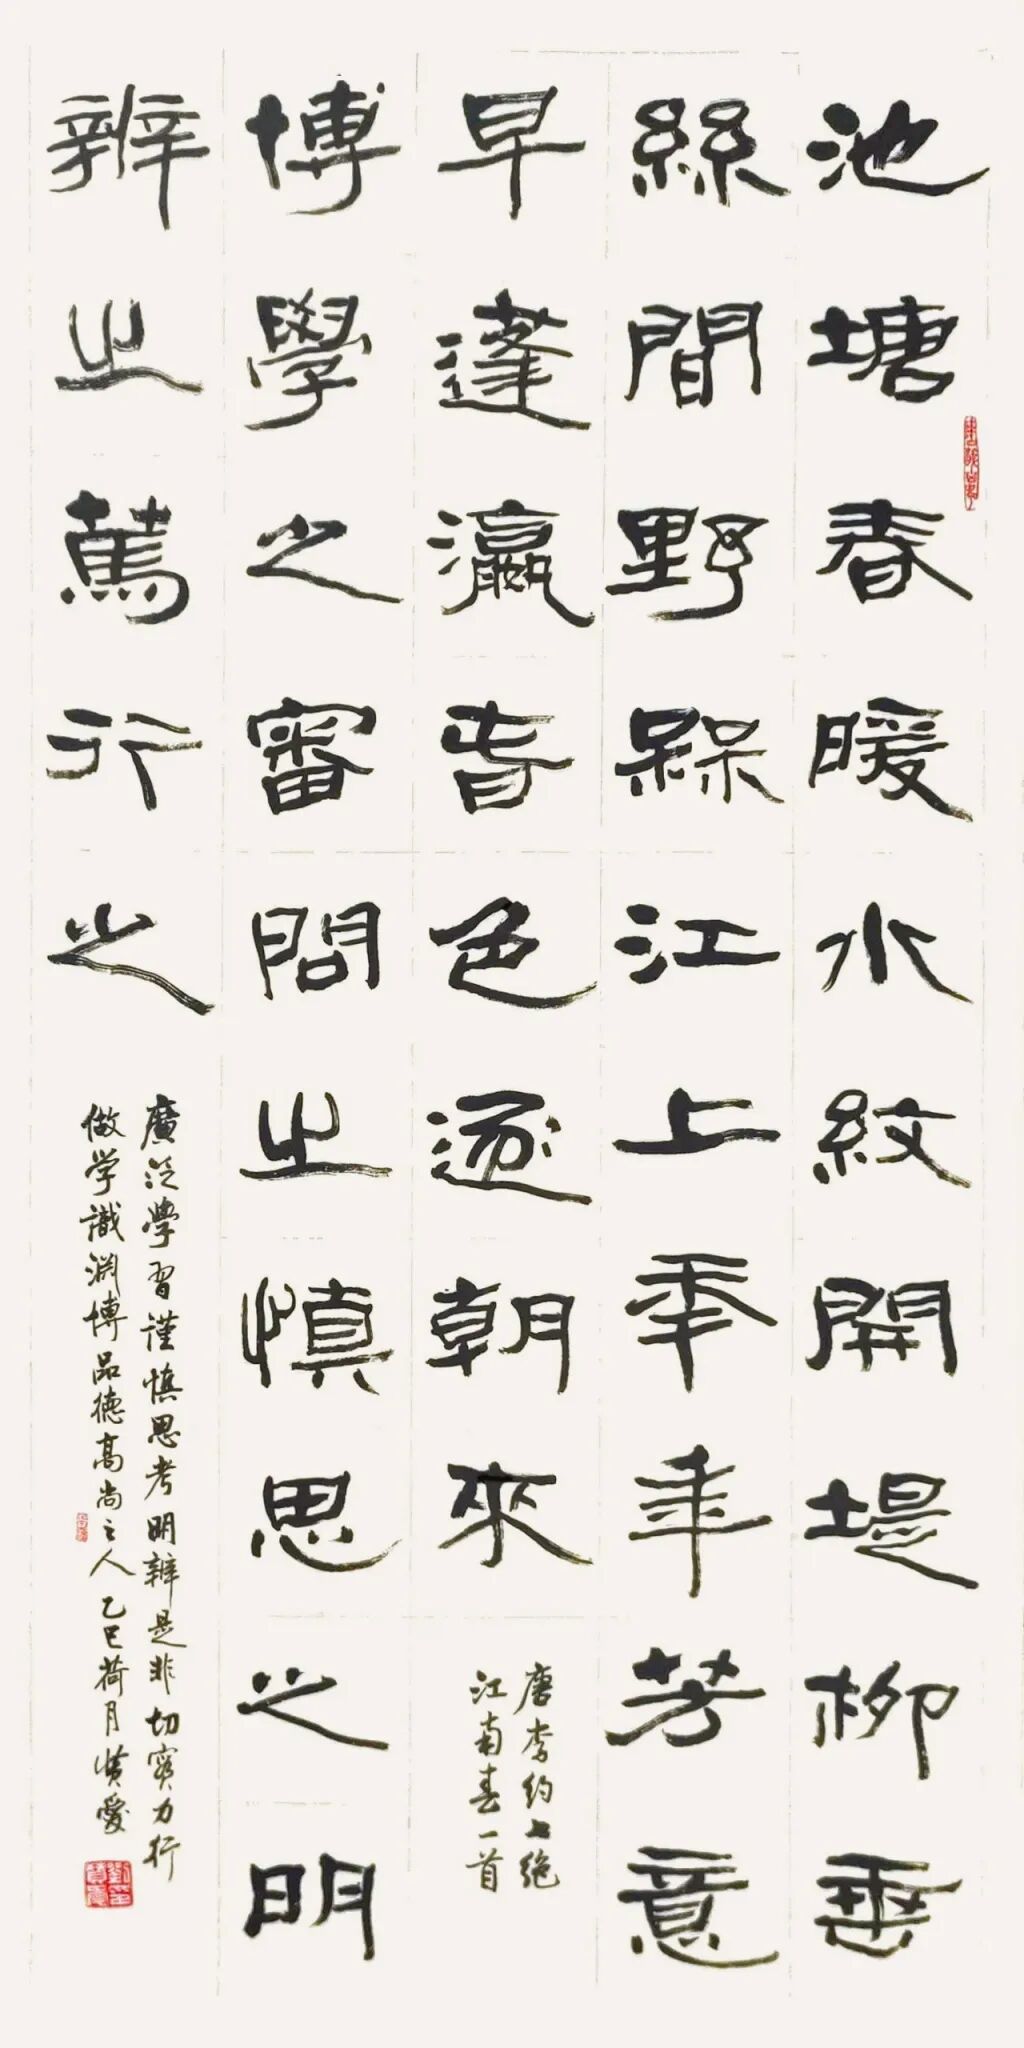 池塘春暖水紋開堤柳垂
絲間野槑江上年年芳意
早蓬瀛春色逐朝來
唐李約七绝
江南春一首
博學之審問之慎思之明
辨之篤行之
廣泛學習謹慎思考明辨是非切實力行
做学識渊博品德高尚之人乙巳荷月愛